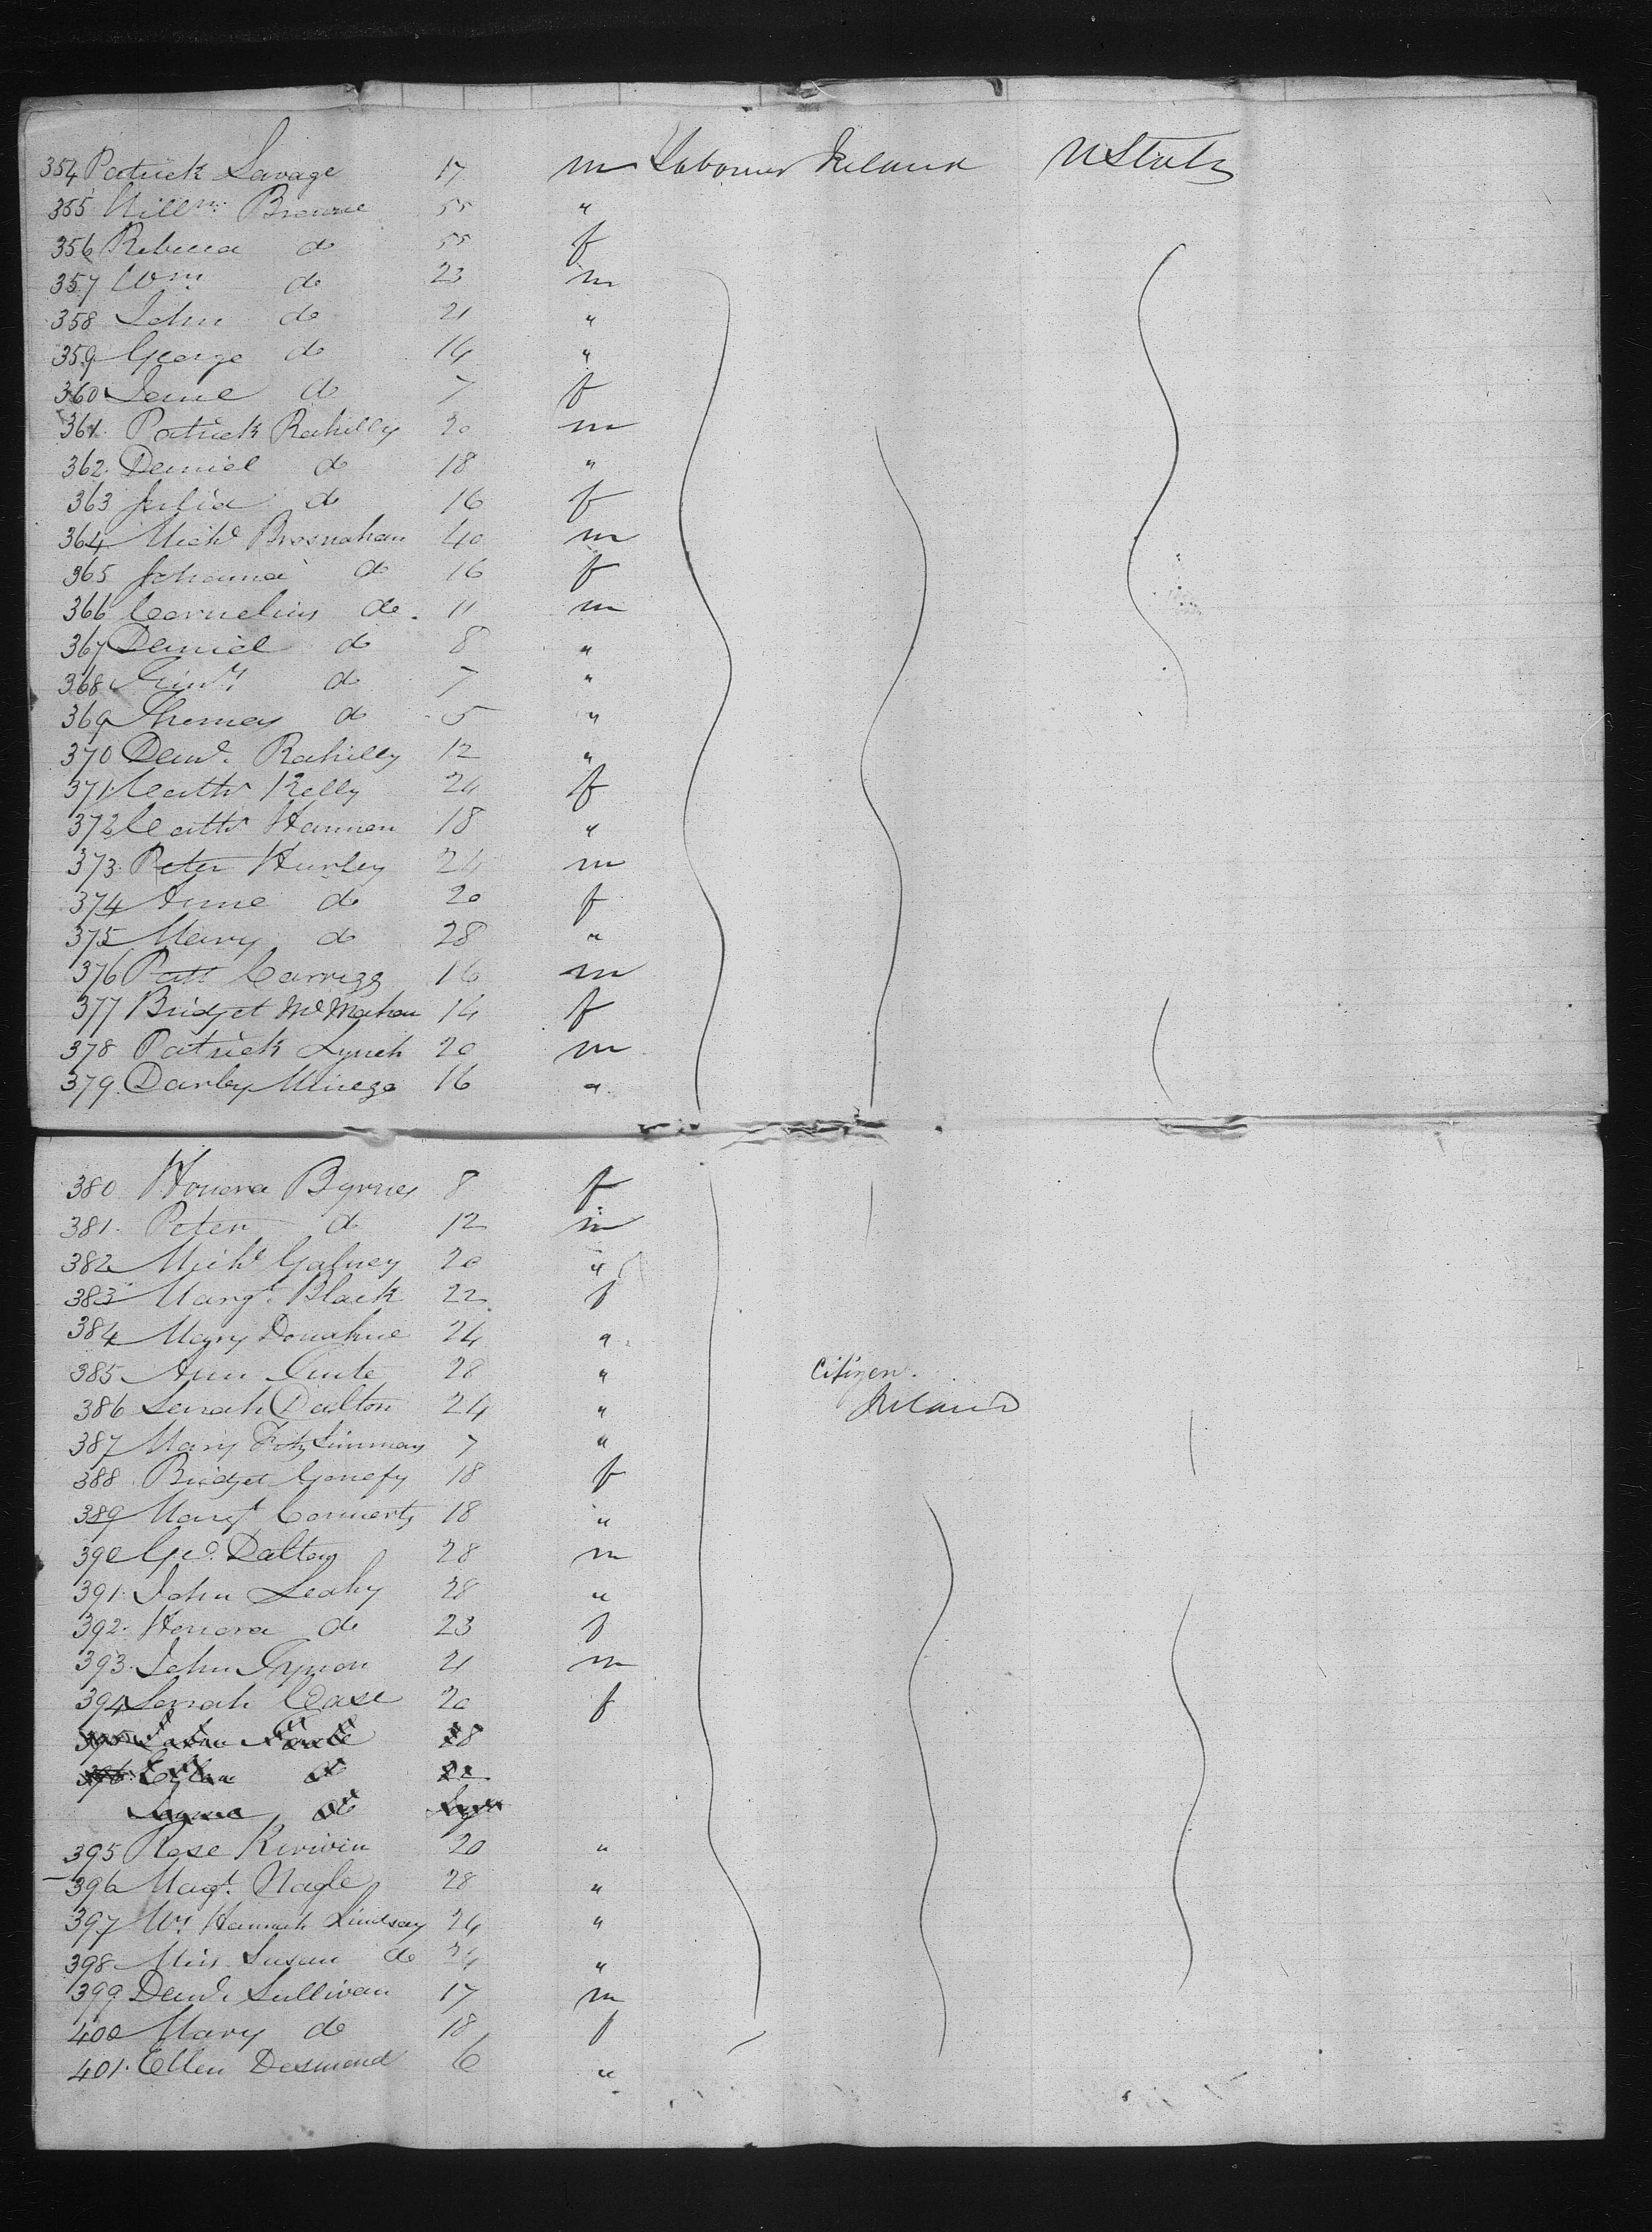 354 Patrick Savage 17 m Labourer Ireland U States
355 Willm Browne 55 "
356 Rebecca do 55 f
357 Wm do 23 m
358 John do 21 "
359 George do 14 "
360 Jane do 7 f
361 Patrick Rahilly 20 m
362 Daniel do 18 "
363 Julia do 16 f
364 Michl Brosnahan 40 m
365 Johanna do 16 f
366 Cornelius do 11 m
367 Daniel do 8 "
368 do 7 "
369 Thomas do 5 "
370 Danl. Rahilly 12 "
371 Cathr Kelly 24 f
372 Cathr Hannon 18 "
373 Peter Hurley 24 m
374 Anne do 20 f
375 Mary do 28 "
376 Patt Carrigg 16 m
377 Bridget McMahon 14 f
378 Patrick Lynch 20 m
379 Darby 16 "
380 Honora Byrnes 8 f
381 Peter do 12 m
382 Michl Gafney 20 "
383 Margt. Black 22 f
384 Mary Donahue 24 "
385 Ann 28 " Citizen.
386 Sarah Dalton 24 " Ireland
387 Mary FitzSimmons 7 "
388 Bridget 18 f
389 Margt 18 "
390 Geo. Dalton 28 m
391 John Leahy 28 "
392 Honora do 23 f
393 John 21 m
394 Sarah Case 20 f
395 Rose Kirivin 20 "
396 Magt. Nagle 28 "
397 Hannah Lindsay 24 "
398 Miss Susan do 24 "
399 Danl. Sullivan 17 m
400 Mary do 18 f
401 Ellen Desmond 6 "